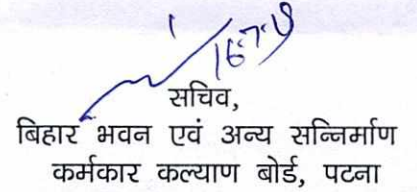 16.7.19
सचिव,
बिहार भवन एवं अन्य सन्निर्माण
कर्मकार कल्याण बोर्ड, पटना